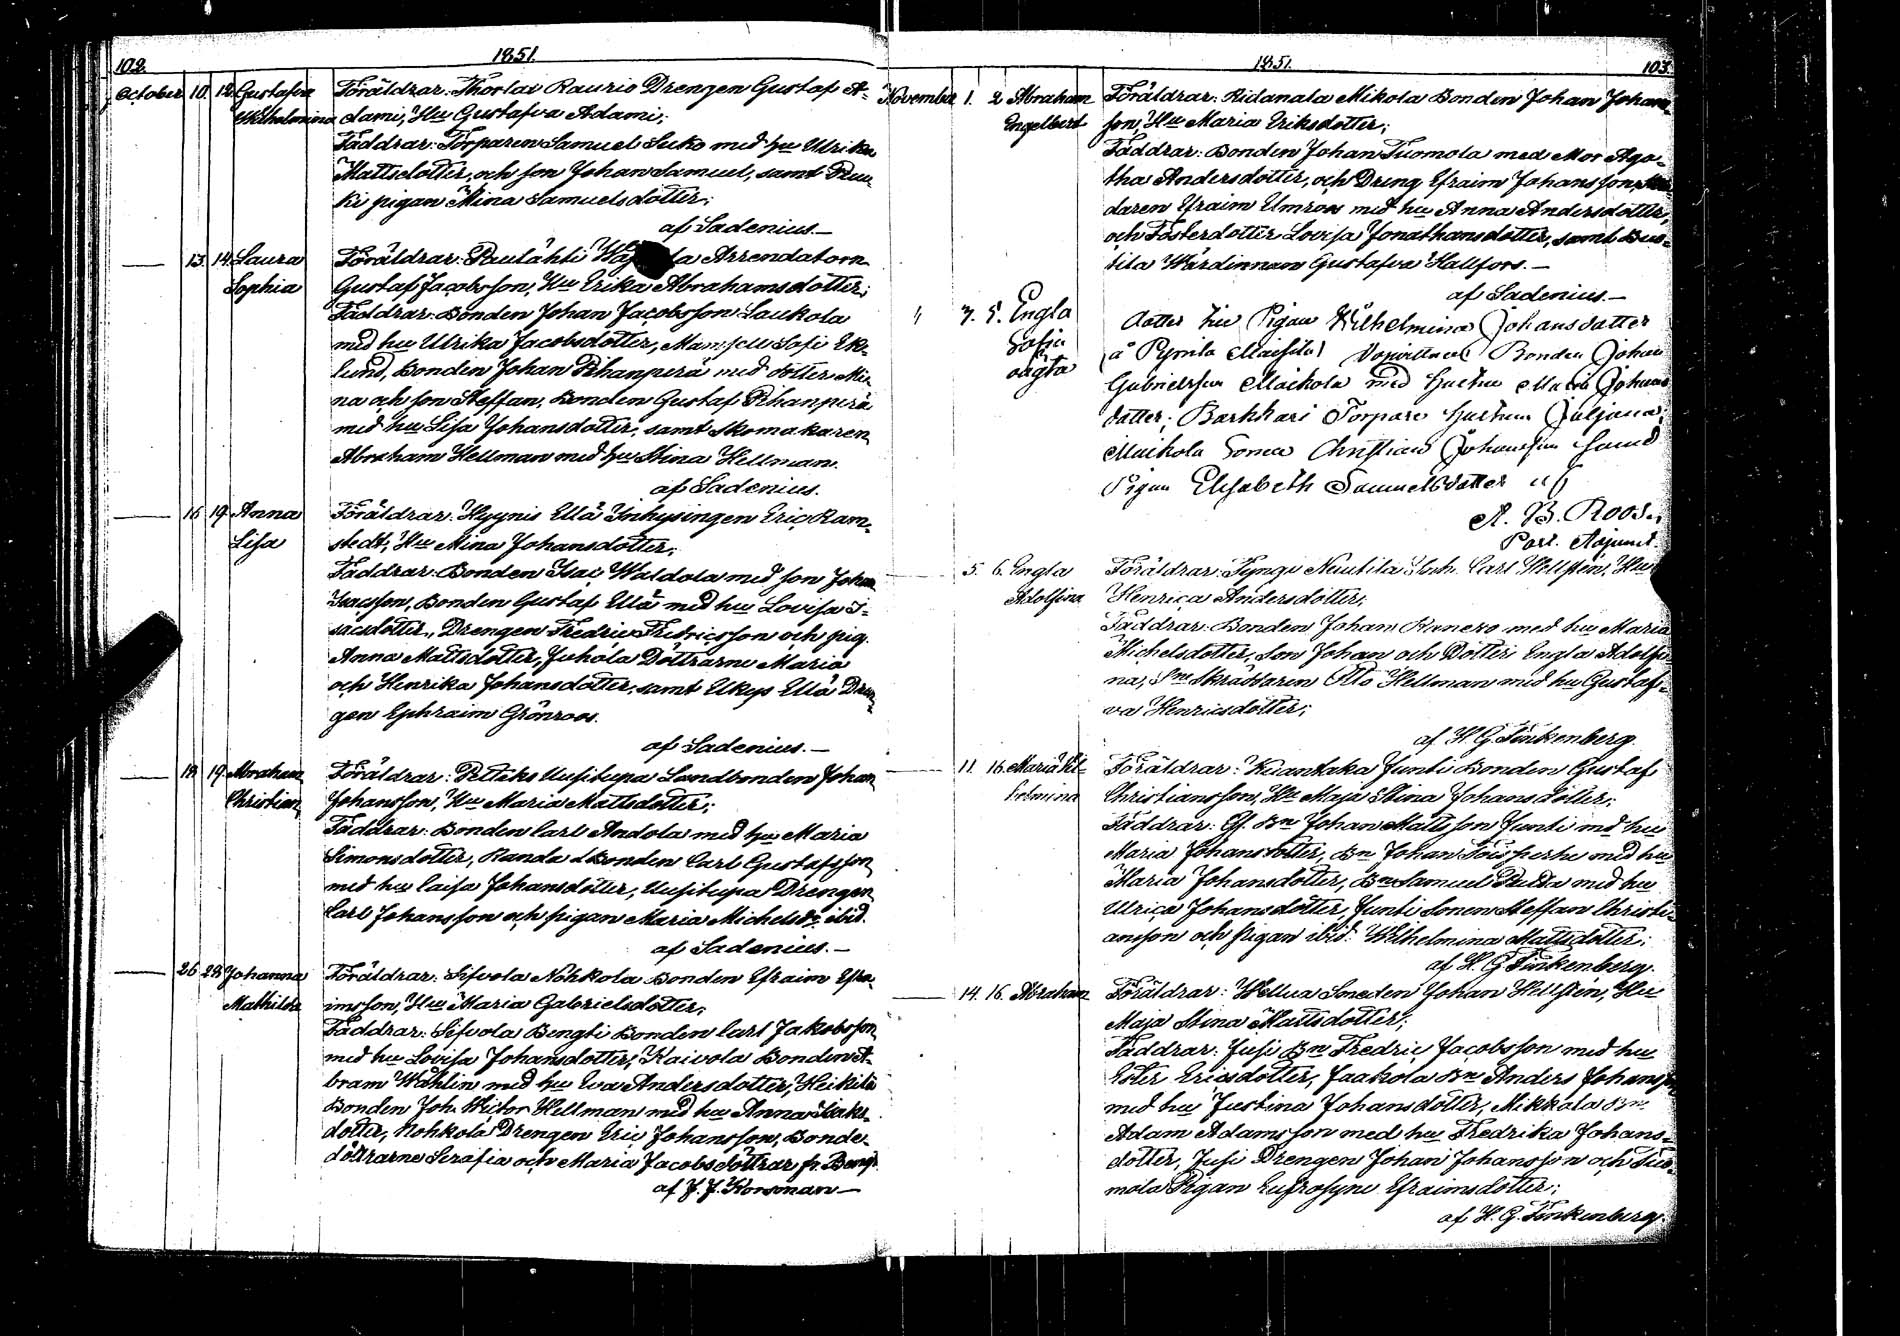 102.
1851.
October 10. 12. Gustafva Föräldrar: Thorlax Raurio Drengen Gustaf A-
Wilhelmina dami, Hu Gustafva Adami;
Faddrar: Torparen Samuel Suko med hu Ulrika
Mattsdotter, och son Johan Samuel, samt
ki pigan Mina Samuelsdotter;
af Sadenius.—
13. 14. Laura Föräldrar: Paulähti Arrendatorn
Sophia Gustaf Jacobsson, Hu Erika Abrahamsdotter;
Faddrar: Bonden Johan Jacobsson Laukola
med hu Ulrika Jacobsdotter, Mamsell Sofi Ek-
lund, Bonden Johan Pihanperä med dotter Mi-
na och son Steffan, Bonden Gustaf Pihanperä
med hu Lisa Johansdotter, samt Skomakaren
Abraham Hellman med hu Stina Hellman.
af Sadenius.
16 19 Anna Föräldrar: Hyynis Ellä Inhysingen Eric Ram-
Lisa stedt, Hu Mina Johansdotter;
Faddrar: Bonden Isac Waldola med son Johan
Isacsson, Bonden Gustaf Ellä med hu Lovisa I-
sacsdotter, Drengen Fredric Fredricsson och pig.
Anna Mattsdotter, Juhola Döttrarne Maria
och Henrika Johansdotter, samt Ukys Ellä Dren-
gen Ephraim Grönroos.
af Sadenius.—
18 19 Abraham Föräldrar: Pelliks Uusitupa Landbonden Johan
Christian Johansson, Hu Maria Mattsdotter;
Faddrar: Bonden Carl Andola med hu Maria
Simonsdotter, Randa Bonden Carl Gustafsson
med hu Caisa Johansdotter, Uusitupa Drengen
Carl Johansson och pigan Maria Michelsdr ibid.
af Sadenius.—
26 28 Johanna Föräldrar: Sifvola Nohkola Bonden Efraim Efra-
Mathilda imsson, Hu Maria Gabrielsdotter,
Faddrar: Sifvola Bengti Bonden Carl Jakobsson
med hu Lovisa Johansdotter; Kaivola Bonden A-
bram Wahlin med hu Eva Andersdotter, Heikilä
Bonden Joh. Victor Hellman med hu Anna Isaks-
dotter, Nohkola Drengen Eric Johansson, Bonde-
döttrarne Serafia och Maria Jacobsdöttrar fr. Bengt
af J. J. Korsman—
1851.
103.
November 1. 2 Abraham Föräldrar: Ridanala Mikola Bonden Johan Johans-
Engelbert son, Hu Maria Eriksdotter;
Faddrar: Bonden Johan Tuomola med Mor Aga-
tha Andersdotter, och Dreng Efraim Johansson,
daren Efraim Elmroos med hu Anna Andersdotter,
och Fosterdotter Lovisa Jonathansdotter, samt Bus-
tila Wärdinnan Gustafva Hallfors.—
af Sadenius.—
" 3. 5. Engla dotter till Pigan Wilhelmina Johansdotter
Sofia å Pyntila Maisila Bonden Johan
Agta Gabrielsson Maikola med hustru Maria Johans
dotter; Barkhari Torpare hustrun Juliana;
Maikola Sonen Christian Johansson samt
Pigan Elisabeth Samuelsdotter
A. B. Roos.
Past. Adjunct.
5. 6. Engla Föräldrar: Carl Hellstén, Hu
Adolfina Henrica Andersdotter;
Faddrar: Bonden Johan med hu Maria
Michelsdotter, Son Johan och Dotter Engla Adolfi-
na, Skräddaren Otto Hellman med hu Gustaf-
va Henricsdotter;
af H. G. Finkenberg.
11. 16. Maria Vil- Föräldrar: Kuantaka Junti Bonden Gustaf
helmina Christiansson, Hu Maja Stina Johansdotter;
Faddrar: Bn Johan Mattsson Junti md hu
Maria Johansdotter, Bn Johan med hu
Maria Johansdotter, Bn Samuel med hu
Ulrica Johansdotter, Junti Sonen Steffan Christi-
ansson och pigan ibid: Wilhelmina Mattsdotter;
af H. G. Finkenberg.
14. 16. Abraham Föräldrar: Wellua Smeden Johan Hellstén, Hu
Maja Stina Mattsdotter;
Faddrar: Jusi Bn Fredric Jacobsson med hu
Ester Ericsdotter, Jaakola Bn Anders Johansson
med hu Justina Johansdotter, Mikkola Bn
Adam Adamsson med hu Fredrika Johans-
dotter, Jusi Drengen Johan Johansson och Tuo-
mola Pigan Eufrosyne Efraimsdotter;
af H. G. Finkenberg.